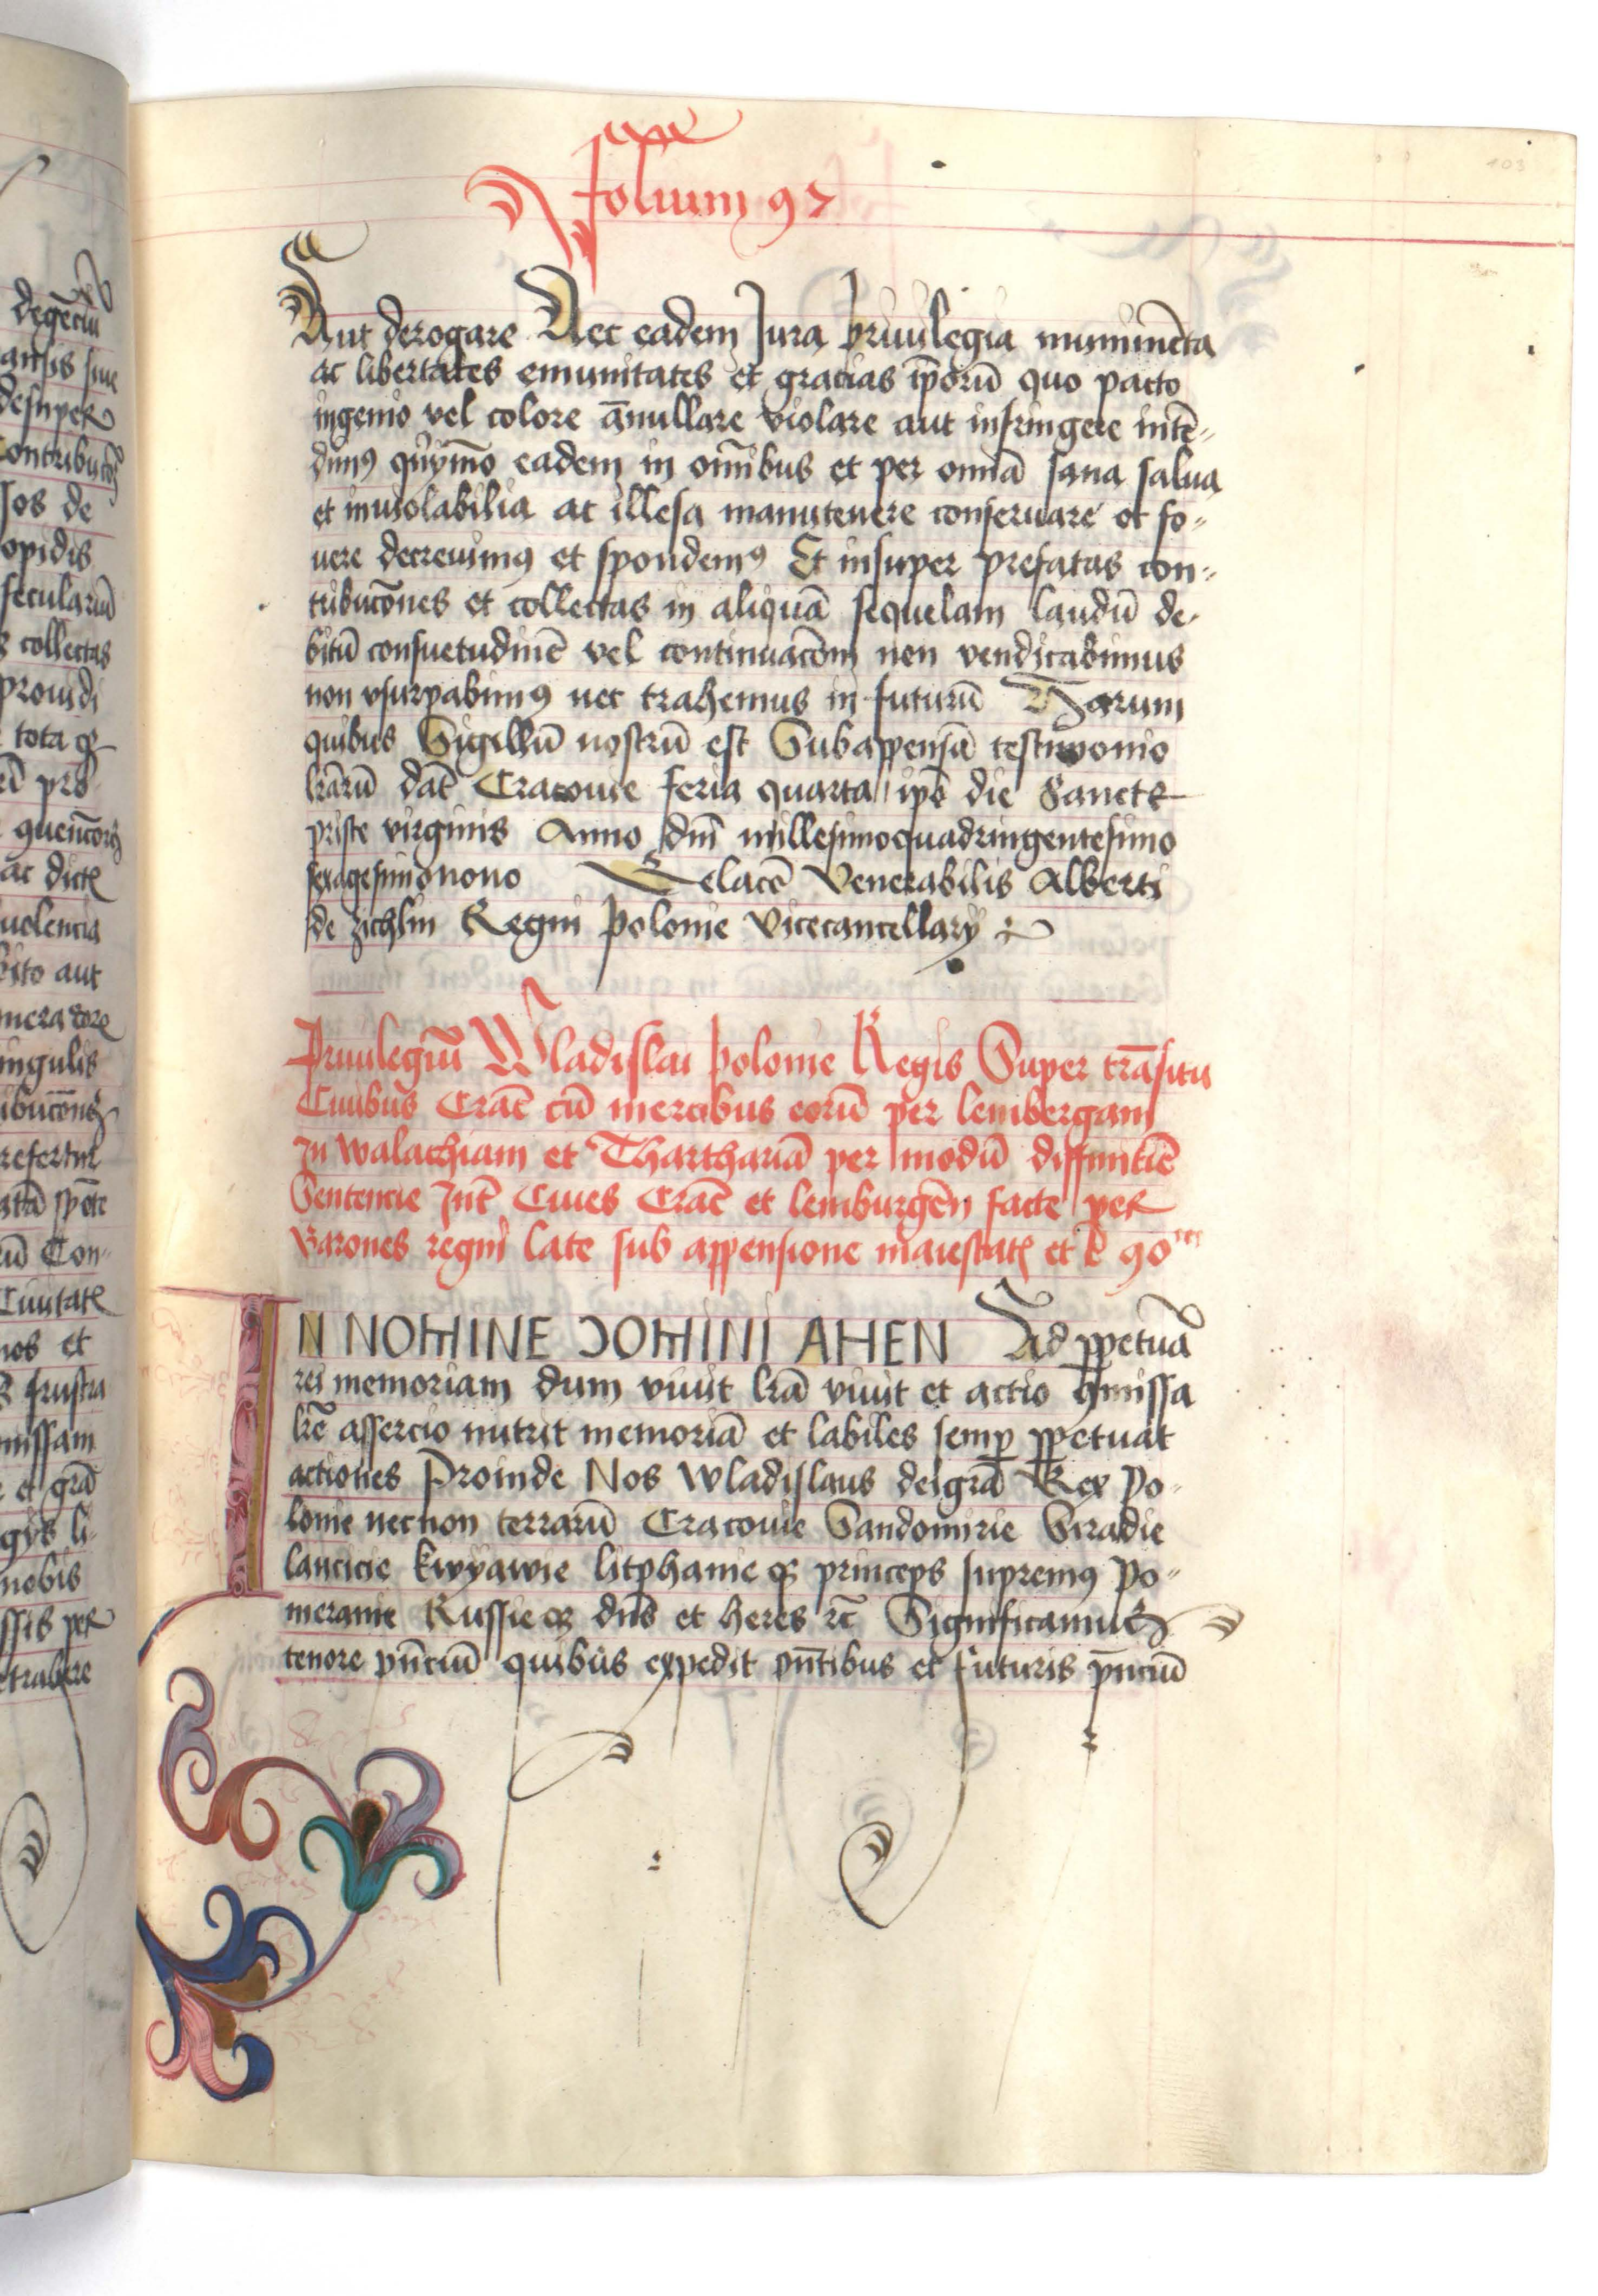 folium 97
Aut derogare Nec eadem Jura privilegia munimēta
ac libertates emunitates et gracias ip̄orū quo pacto
ingenio vel colore ānullare violare aut infringere intē-
dimꝰ quīymō eadem in om̄ibus et per omnia sana salua
et inviolabilia ac illesa manutenere conseruare et fo-
uere decreuimꝰ et spondemꝰ Et insuper prefatas con-
tribucōnes et collectas in aliquā sequelam laudū de-
bitū consuetudinē vel continuacōm non vendicabimus
non vsurpabimꝰ nec trahemus in futurū Harum
quibus Sigillū nostrū est Subappensū testimonio
lr̄arū dat̄ Cracouie feria quarta ip̄o die Sancte
priste virginis Anno dn̄i millesimoquadringentesimo
sexagesimonono Relacō Venerabilis Alberti
de zichlin Regni polonie Vicecancellarij
Priuilegiū Wladislai polonie Regis Super trāsitu
Ciuibus Crac̄ cū mercibus eorū per lembergam
In walachiam et Thartariā per modū diffinitiē
Sentencie Int̄ Ciues Crac̄ et lemburgēn facte per
Barones regni late sub appensione maiestatꝭ et
IN NOMINE DOMINI AMEN Ad ꝑpetuā
rei memoriam dum viuit lr̄a viuit et actio ꝯmissa
lr̄e assercio nutrit memoriā et labiles semꝑ ꝑpetuat
actiones Proinde Nos wladislaus dei grā Rex Po-
lonie necnon terrarū Cracouie Sandomirie Siradie
lancicie kwyawie litphanie qꝫ princeps supremꝰ Po-
meranie Russie qꝫ dn̄s et heres rc̄ Significamus
tenore pn̄ciū quibus expedit pn̄tibus et futuris pn̄ciū